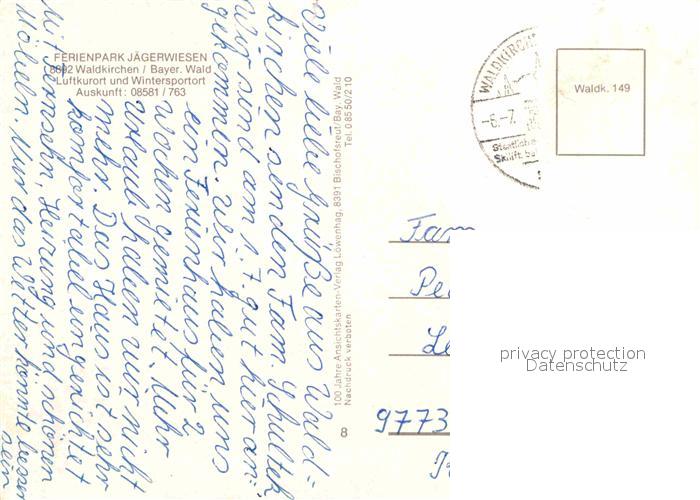 FERIENPARK JÄGERWIESEN
8392 Waldkirchen / Bayer. Wald
Luftkurort und Wintersportort
Auskunft: 08581 / 763
Viele liebe Grüße aus Wald=
kirchen senden Fam. Schultek
Wir sind am 1.7. gut hier an=
gekommen. Wir haben uns
ein Ferienhaus für 2
Wochen gemietet. Mehr
Urlaub haben wir nicht
mehr. Das Haus ist sehr
komfortabel eingerichtet
mit Fernsehn, Heizung und schönen
Möbeln. Nur das Wetter könnte besser
sein
100 Jahre Ansichtskarten-Verlag Löwenhag, 8391 Bischofsreut/Bay. Wald
Nachdruck verboten Tel. 0 85 50/2 10
8
WALDKIRCH
-6.-7.
Staatliche
Skilift
Waldk. 149
Fam
Pe
Le
9773
privacy protection
Datenschutz